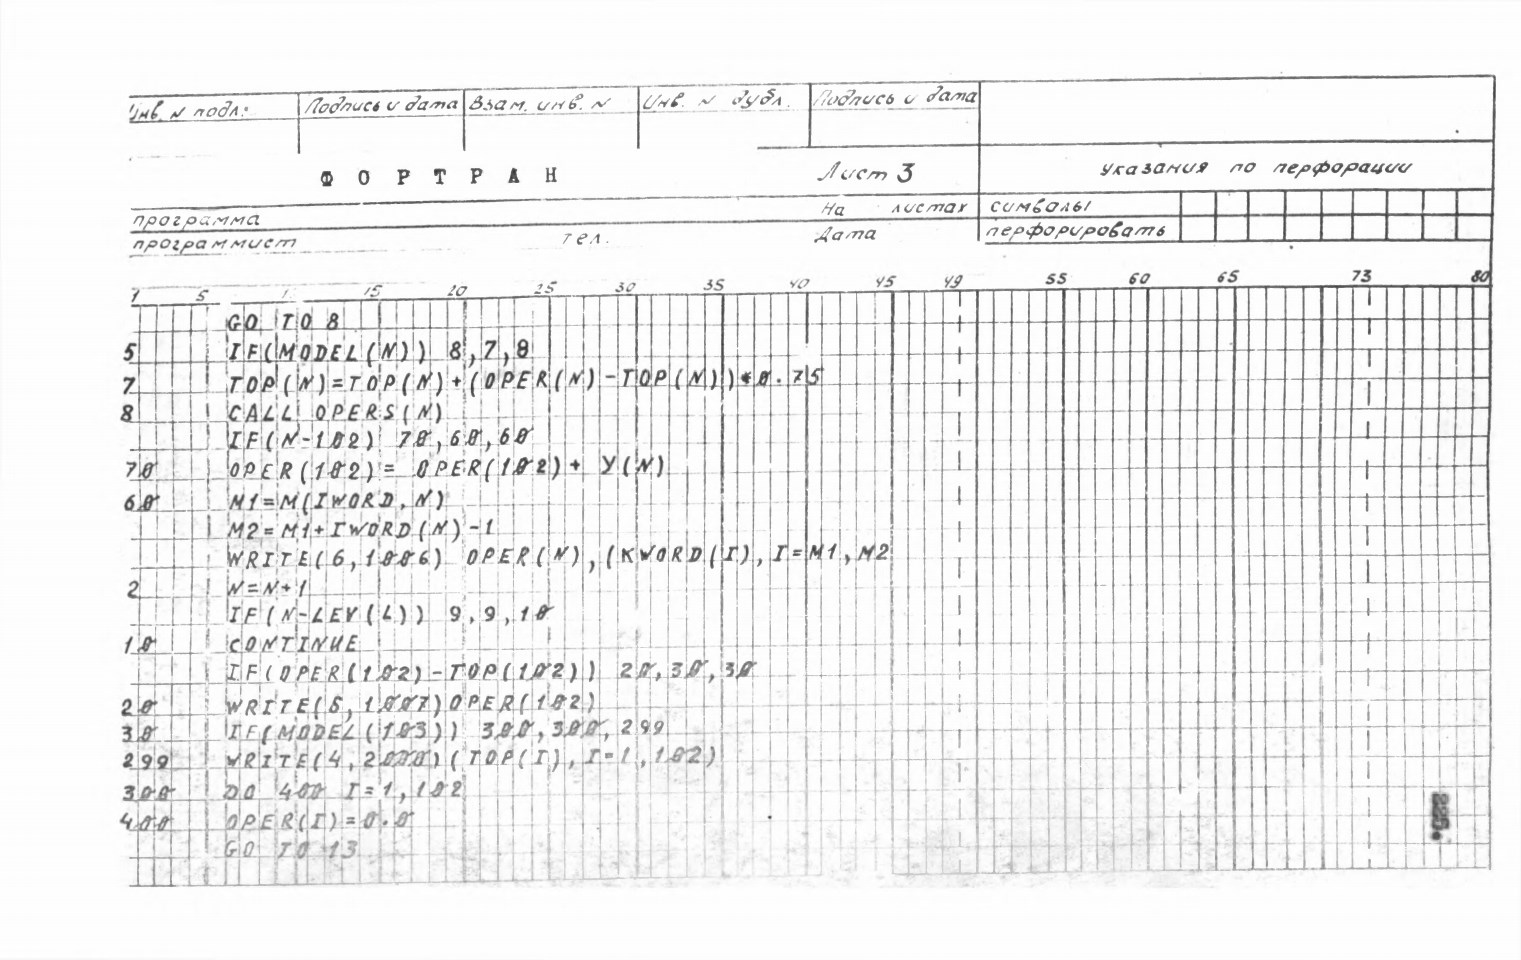 Инв. N подл: Подпись и дата Взам. инв. N Инв. N дубл. Подпись и дата
ФОРТРАН Лист 3 Указания по перфорации
программа На листах символы
программист тел. Дата перфорировать
1 5 15 20 25 30 35 40 45 49 55 60 65 73 80
GO TO 8
5 IF(MODEL(N)) 8,7,8
7 TOP(N)=TOP(N)+(OPER(N)-TOP(N))*0.75
8 CALL OPERS(N)
IF(N-102) 70,60,60
70 OPER(102)= OPER(102)+ Y(N)
60 M1=M(IWORD,N)
M2=M1+IWORD(N)-1
WRITE(6,1006) OPER(N),(KWORD(I),I=M1,M2
2 N=N+1
IF(N-LEV(L)) 9,9,10
10 CONTINUE
IF(OPER(102)-TOP(102)) 20,30,30
20 WRITE(6,1007)OPER(102)
30 IF(MODEL(103)) 300,300,299
299 WRITE(4,2000)(TOP(I),I=1,102)
300 DO 400 I=1,102
400 OPER(I)=0.0
GO TO 13